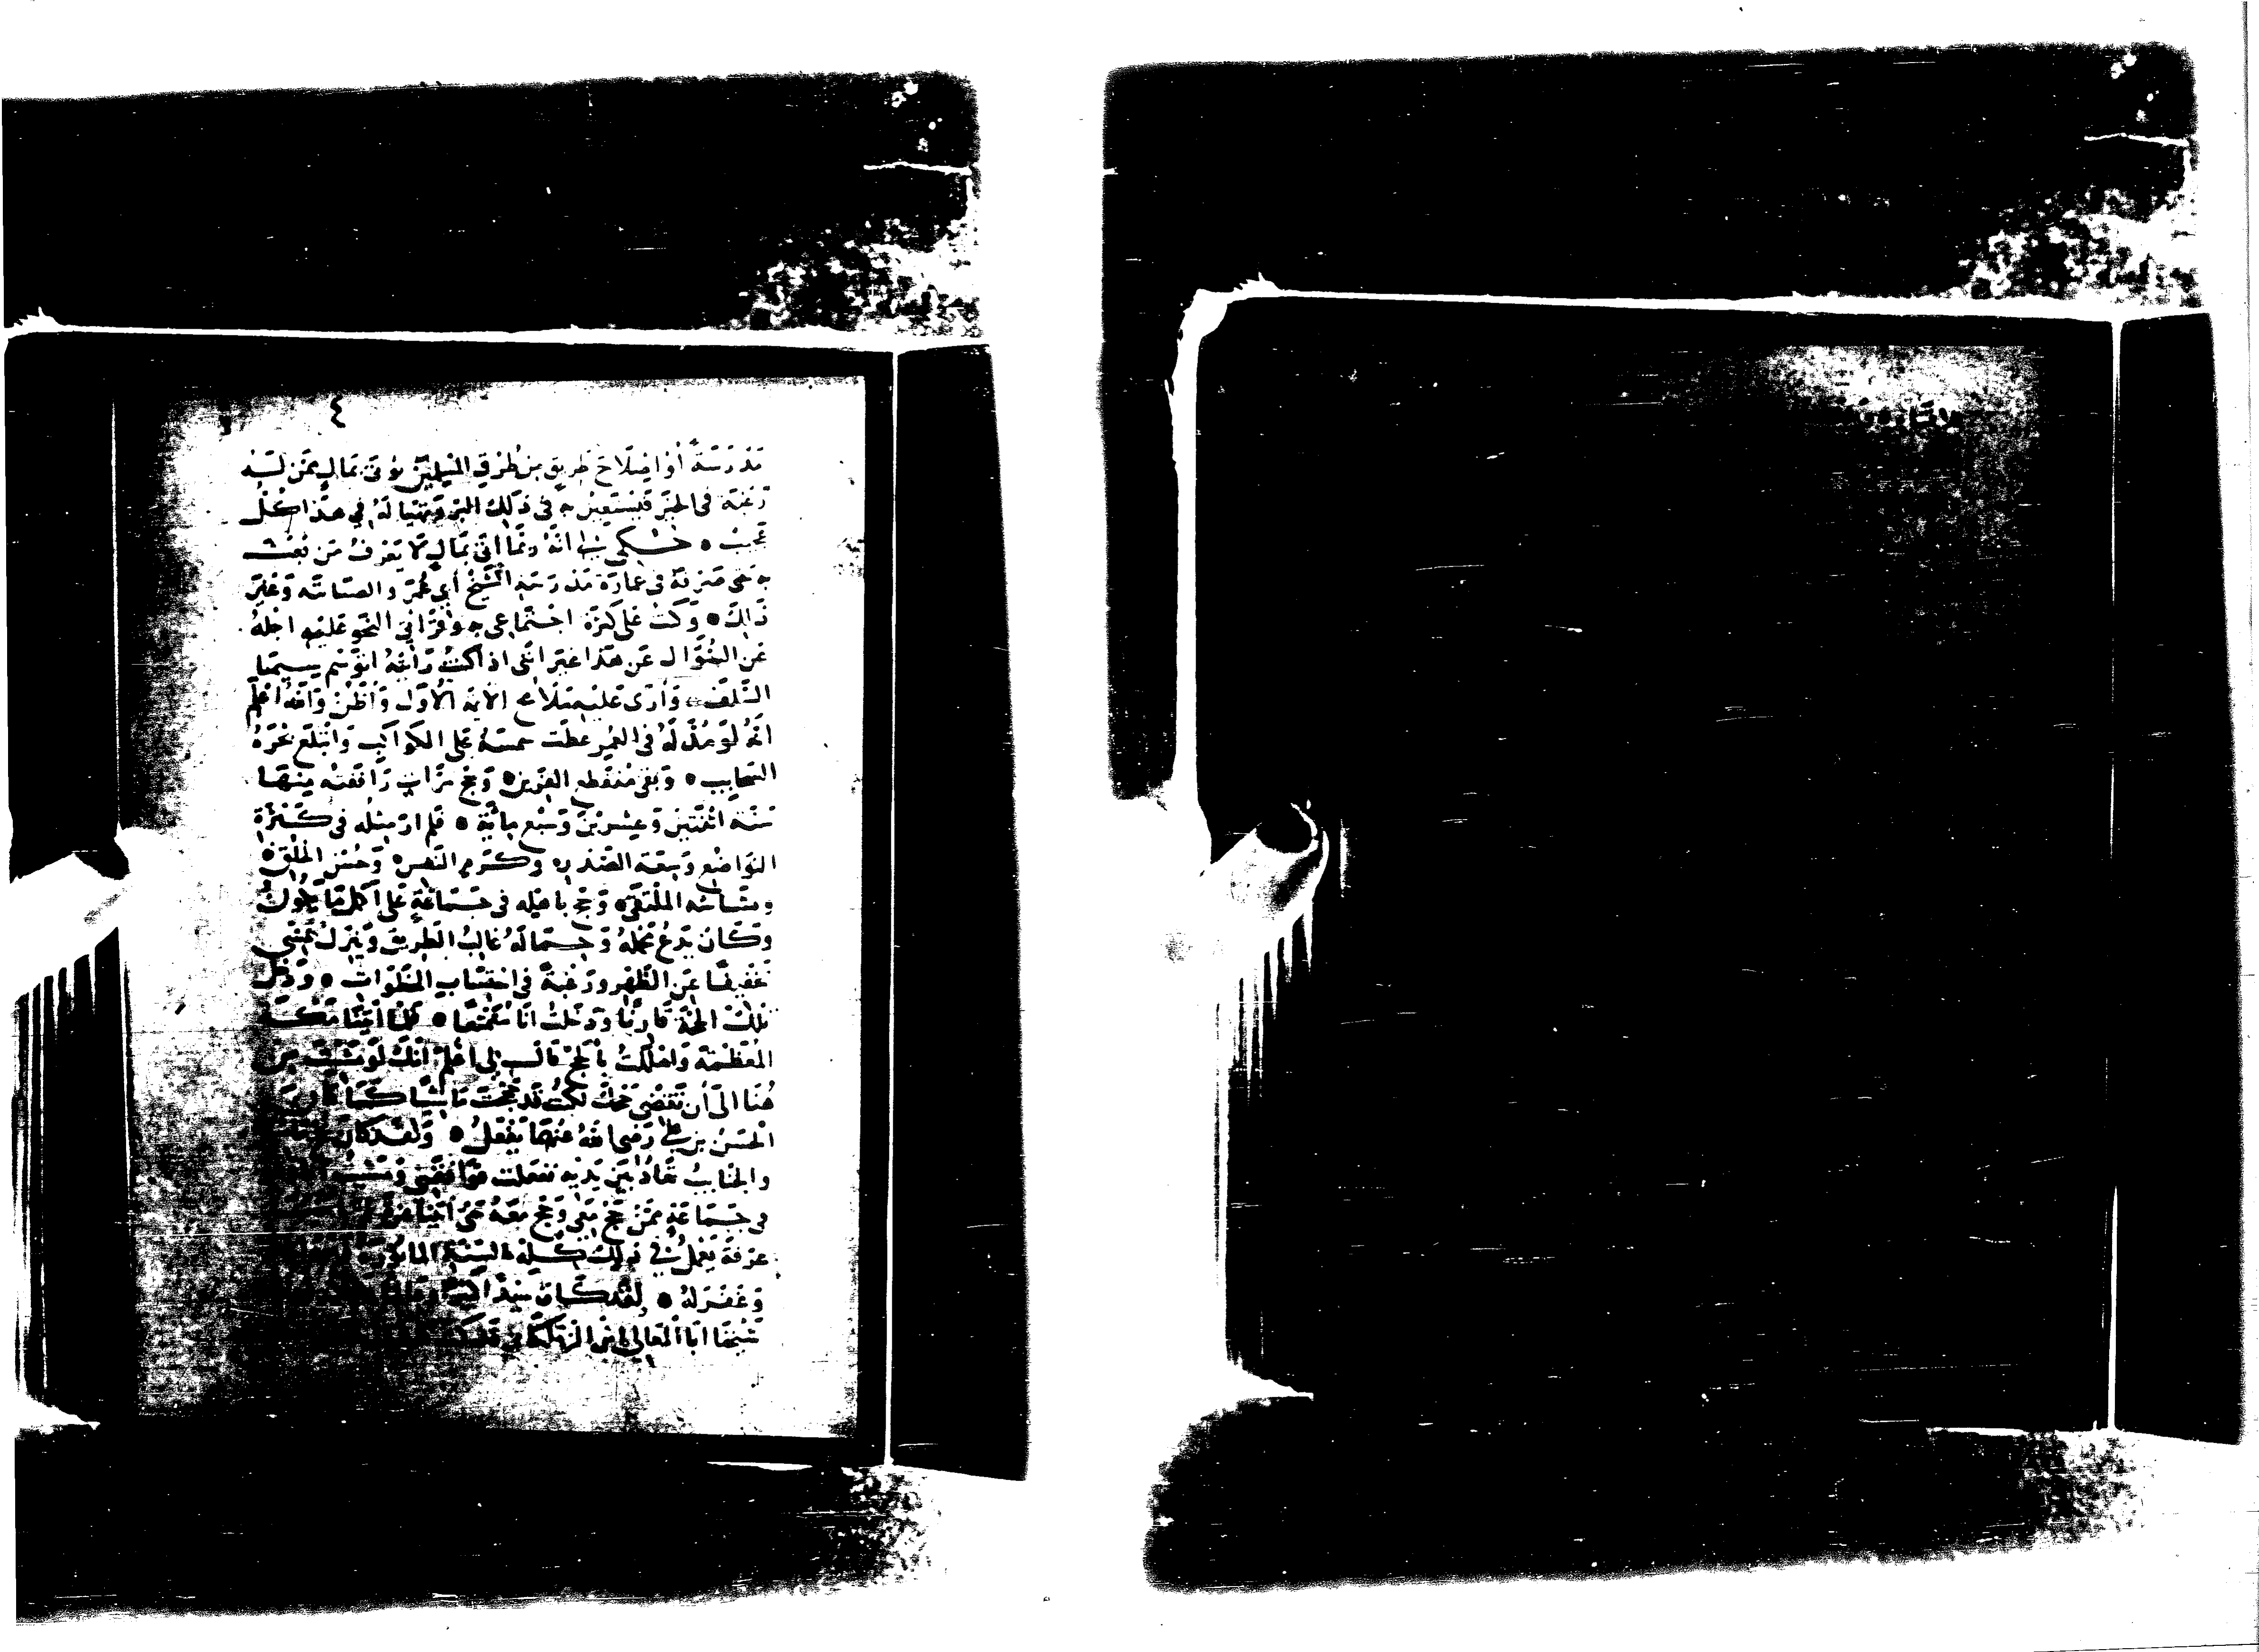 ٤
مَدْرَسَة أو إصْلَاح طَرِيق مِن طُرُقِ المُسْلِمِين يُؤتى بمَالٍ مِمَّن لَهُ
رَغبَة فى الخَيْر فيَسْتَعِين بِه فى ذَلِكَ البِرّ وَيَتهيا لَهُ فى هَذا كُل
عَجَب ٥ حكى لى انّه رُبَّما اتى بمَالٍ لا يَعْرِفُ مَن بَعَثَ
به حَتى صَرفهُ فى عمارَة مَدْرَسَة الشَّيْخ أبى عُمَرَ والصبَابَة وَغَيْرَ
ذَلِكَ ٥ وَكنت عَلى كثرة اجْتماعى به وقرَاتى النَحْو عَليه اجلهُ
عَن السُؤَال عَن هَذا غير انّنى اذا كنتُ رَأيتهُ اتوَسَّم سِيمَا
السَّلَف ٥ وَأرَى عَلَيه مَلَامح الايمة الأوَل وَأظُنّ وَاللهُ أعْلَم
انّهُ لَوْ مُدَّ لَهُ فى العُمر غطّت شمسهُ عَلى الكوَاكِب وَابتلعَ بَحْرَهُ
السَحَايب ٥ وَبَقى مُنقَطِع القَرِين ٥ وَحَج مَرَّاتٍ رَافقتهُ مِنهَا
سَنَة اثْنَتَيْن وَعِشرِينَ وَسَبْع مِائَة ٥ فَلم ارَ مِثله فى كَثرَةِ
التواضُع وَسِعَة الصَّدْر ٥ وَكَرم النَّفس ٥ وَحُسْن الخُلق ٥
وبشَاشة المُلتقَى ٥ وَحَج باهله فى جَمَاعَةٍ عَلى أكمَل مَا يَكونُ
وَكَانَ يَدَعُ مَحْملهُ وَجِمَالَهُ غَالِبُ الطَرِيق وَينزلُ يَمْشى
تخفِيفًا عَن الظَّهْر وَرَغْبَةً فى احْتسَاب الخطوَات ٥ وَدَخَل
تِلكَ الحَجَّة قَارِنًا وَدَخَلتُ أنا مُتَمَتّعًا ٥ فَلمَّا أتَيْنَا مَكَّة
المُعَظَّمَة وَاهللتُ بالحَجّ قَالَ لِى اعْلم أنّك لَوْ مَشَيْتَ مِن
هُنَا الَى أن تَقضِى حَجّك لكنت قد حَجَجْتَ مَاشِيًا كَمَا كَانَ
الحَسَنُ بن على رَضى اللهُ عنهمَا يَفْعَلُ ٥ وَلقد كَانَ
والجنايبُ تقَادُ بَيْنَ يَدَيْهِ ففعلت
فى جَمَاعَةٍ مِمَّن حَجَّ مَعِى وَحَج مَعَهُ حَتى أتَيْنَا
عرفَة يَعْمَلُ فى ذَلِكَ كُلِّه بالسُّنَّةِ
وَغَفَرَ لَهُ ٥ لَقَد كَانَ سَيّدًا
شَيْخنَا ابَا المَعَالِى ابن الزملكَانى